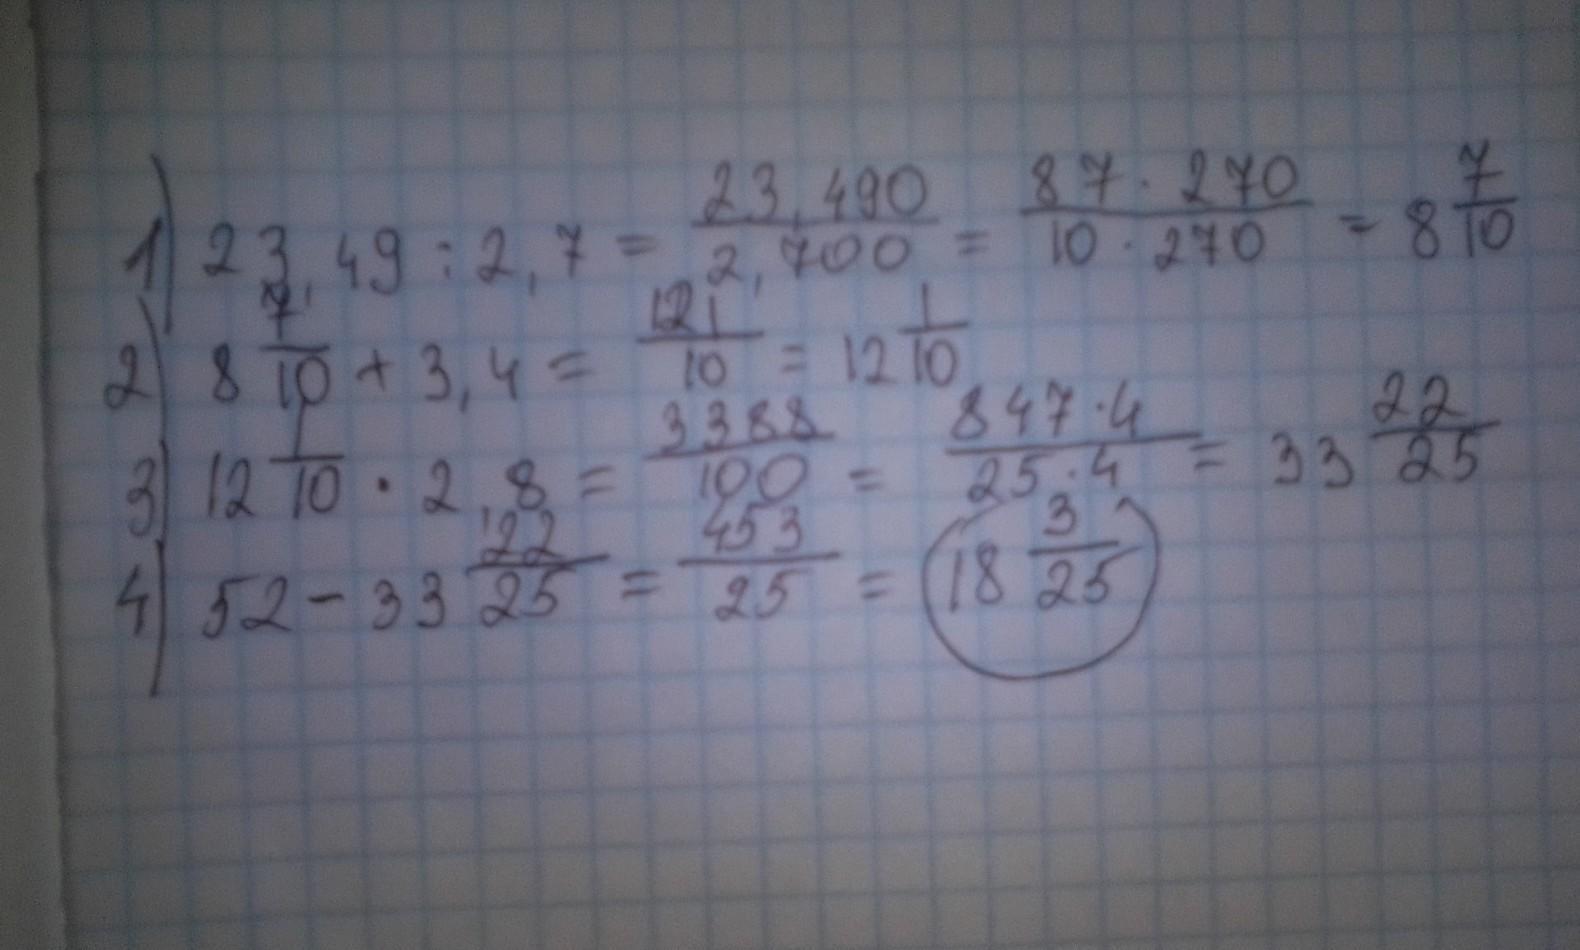 1) 23,49 : 2,7 = 23,490/2,700 = 87 · 270/10 · 270 = 8 7/10
2) 8 7/10 + 3,4 = 121/10 = 12 1/10
3) 12 1/10 · 2,8 = 3388/100 = 847 · 4/25 · 4 = 33 22/25
4) 52 - 33 22/25 = 453/25 = 18 3/25